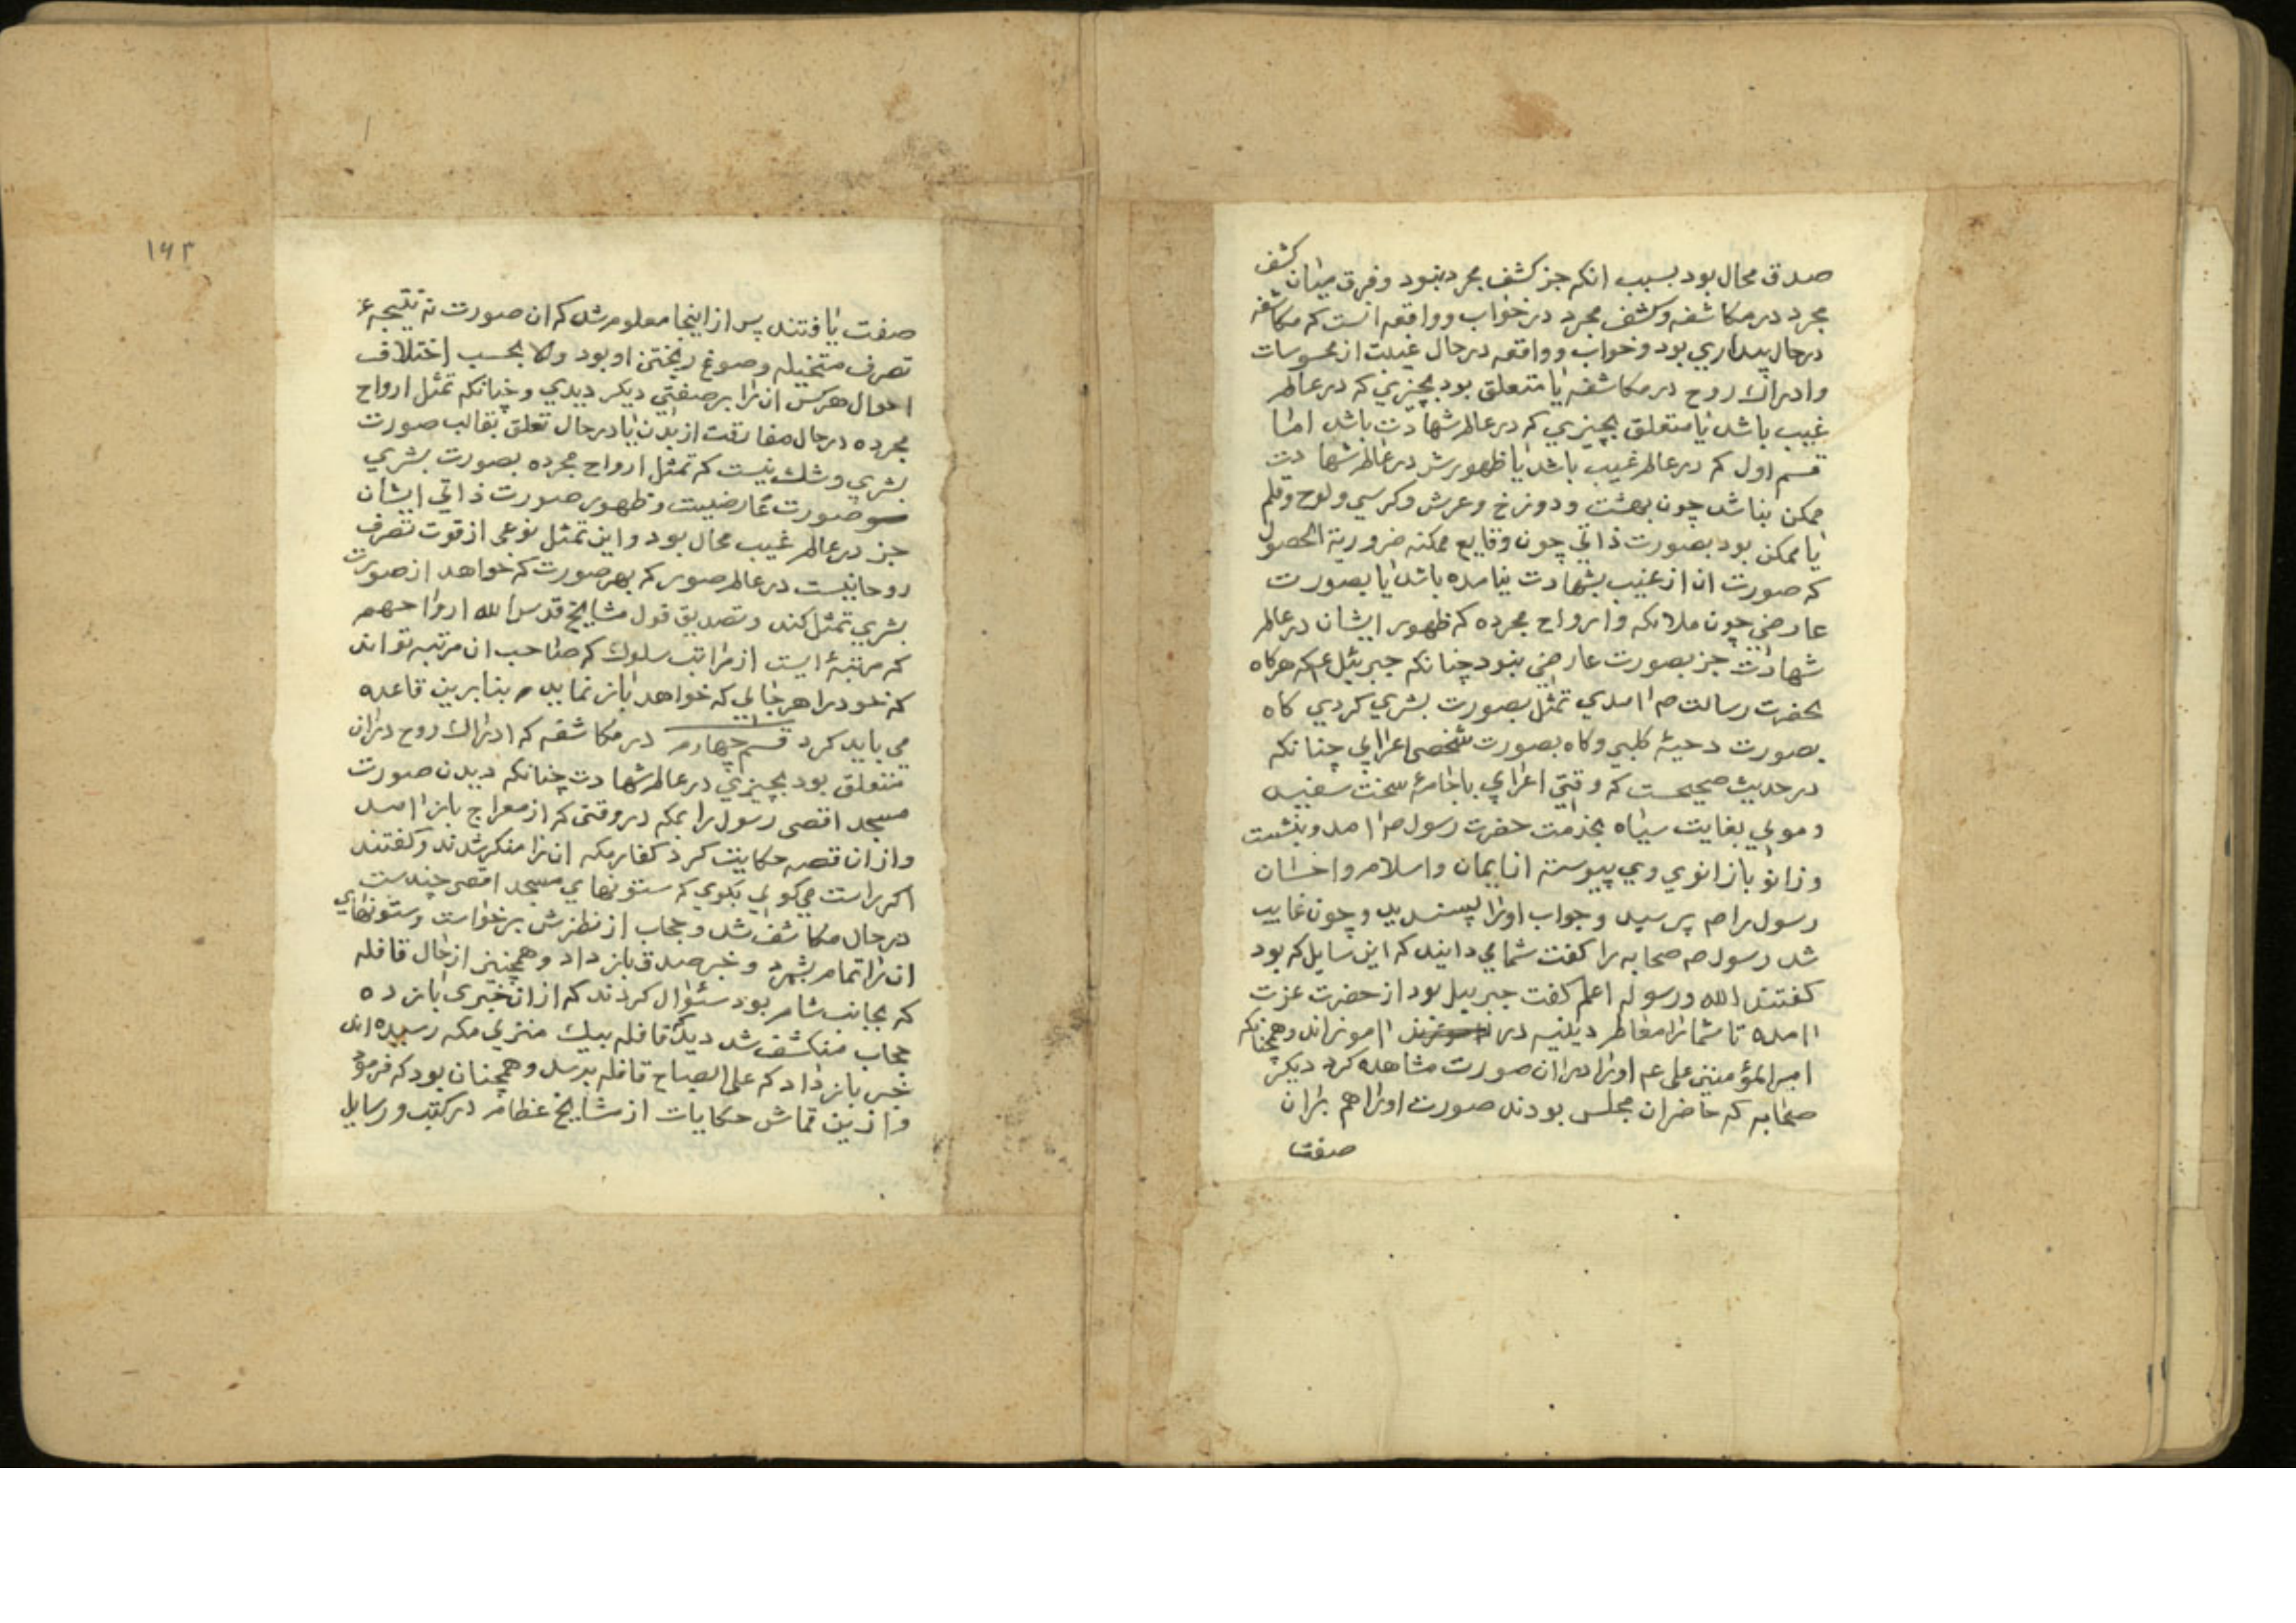 صدق محال بود بسبب انکه جز کشف مجرد نبود وفرق میان کشف
مجرد در مکاشفه وکشف مجرد در خواب وواقعه انست که مکاشفه
در حال بیداری بود وخواب وواقعه در حال غیبت از محسوسات
وادراك روح در مکاشفه یا متعلق بود بچیزي که در عالم
غیب باشد یا متعلق بچیزي که در عالم شهادت باشد اما
قسم اول که در عالم غیب باشد یا ظهورش در عالم شهادت
ممکن نباشد چون بهشت ودوزخ وعرش وکرسي ولوح وقلم
یا ممکن بود بصورت ذاتي چون وقایع ممکنه ضروریة الحصول
که صورت ان از غیب بشهادت نیامده باشد یا بصورت
عارضي چون ملائکه وارواح مجرده که ظهور ایشان در عالم
شهادت جز بصورت عارضي نبود چنانکه جبرئیل ع که هرکاه
بحضرت رسالت ص اامدي تمثل بصورت بشري کردي کاه
بصورت دحیهٔ کلبي وکاه بصورت شخصی اعرابي چنانکه
در حدیث صحیحست که وقتي اعرابي باجامهٔ سخت سفید
وموی بغایت سیاه بخدمت حضرت رسول ص اامد وبنشست
وزانو بازانوي وي پیوسته از ایمان واسلام واحسان
رسول را ص پرسید وجواب اورا پسندید وچون غایب
شد رسول ص صحابه را کفت شما مي دانید که این سایل که بود
کفتند الله ورسوله اعلم کفت جبرییل بود از حضرت عزت
اامده تا شمارا معالم دینیه در اامو​زاند وهمچنانکه
امیر المؤمنین علی عم اورا در ان صورت مشاهده کرد دیکر
صحابه که حاضران مجلس بودند صورت اورا هم بران
صفت
۱۶۳
صفت یافتند پس از اینجا معلوم شد که ان صورت نه نتیجهٔ
تصرف متخیله وصوغ ریختن او بود والا بحسب اختلاف
احوال هرکس ان را بر صفتي دیکر دیدي وچنانکه تمثل ارواح
مجرده در حال مفارقت از بدن یا در حال تعلق بقالب صورت
بشري وشك نیست که تمثل ارواح مجرده بصورت بشري
صورت عارضیست وظهور صورت ذاتي ایشان
جز در عالم غیب محال بود واین تمثل نوعی از قوت تصرف
روحانیست در عالم صور که بهر صورت که خواهد از صورت
بشري تمثل کند وتصدیق قول مشایخ قدس الله ارواحهم
که مرتبهٔ ایست از مراتب سلوك که صاحب ان مرتبه تواند
که خود را هر جايي که خواهد باز نماید بنابرین قاعده
مي باید کرد قسم چهارم در مکاشفه که ادراك روح دران
متعلق بود بچیزي در عالم شهادت چنانکه دیدن صورت
مسجد اقصی رسول را بمکه در وقتی که از معراج باز اامد
واز ان قصه حکایت کرد کفار مکه ان را منکر شدند وکفتند
اکر راست مي کویي بکوي که ستونهاي مسجد اقصی چندست
در حال مکاشف شد وحجاب از نظرش برخواست وستونهاي
ان را تمام بشمرد وخبر صدق باز داد وهمچنین از حال قافله
که بجانب شام بود سئوال کردند که از ان خبری باز ده
حجاب منکشف شد دید قافله بیك منزلي مکه رسیده اند
خبر باز داد که علی الصباح قافله برسد وهمچنان بود که فرمود
وازین قماش حکایات از مشایخ عظام در کتب ورسایل